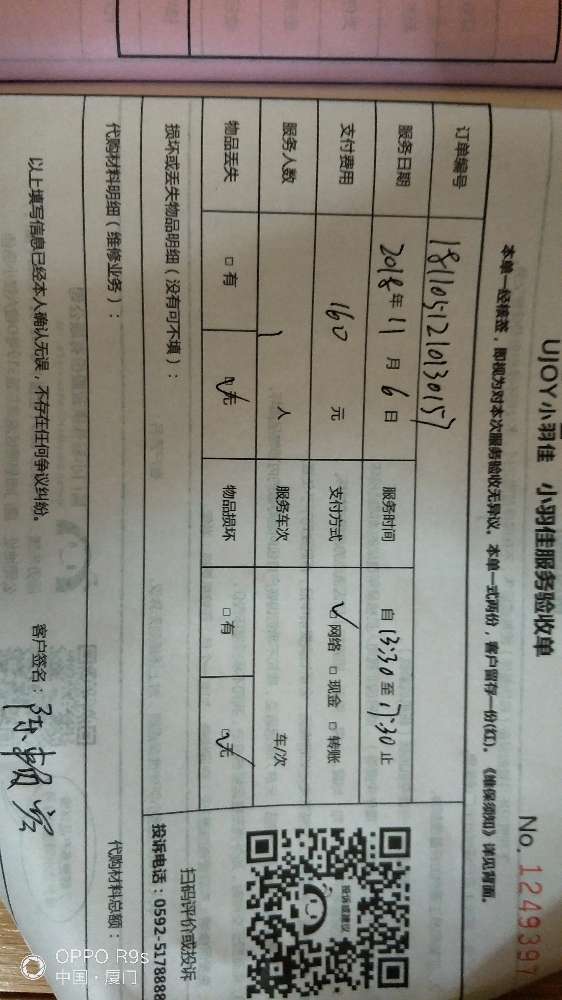 UJOY小羽佳 小羽佳服务验收单
No. 1249397
本单一经核签，即视为对本次服务验收无异议。本单一式两份，客户留存一份(红)。《维保须知》详见背面。
订单编号 1811051210130157
服务日期 2018年11月6日 服务时间 自13:30至17:30止
支付费用 160元 支付方式 ☑网络 □现金 □转账
服务人数 1人 服务车次 车/次
物品丢失 □有 ☑无 物品损坏 □有 ☑无
损坏或丢失物品明细（没有可不填）：
投诉或建议
扫码评价或投诉
投诉电话：0592-5178888
代购材料明细（维修业务）：
代购材料总额：
以上填写信息已经本人确认无误，不存在任何争议纠纷。
客户签名：
OPPO R9s
中国·厦门